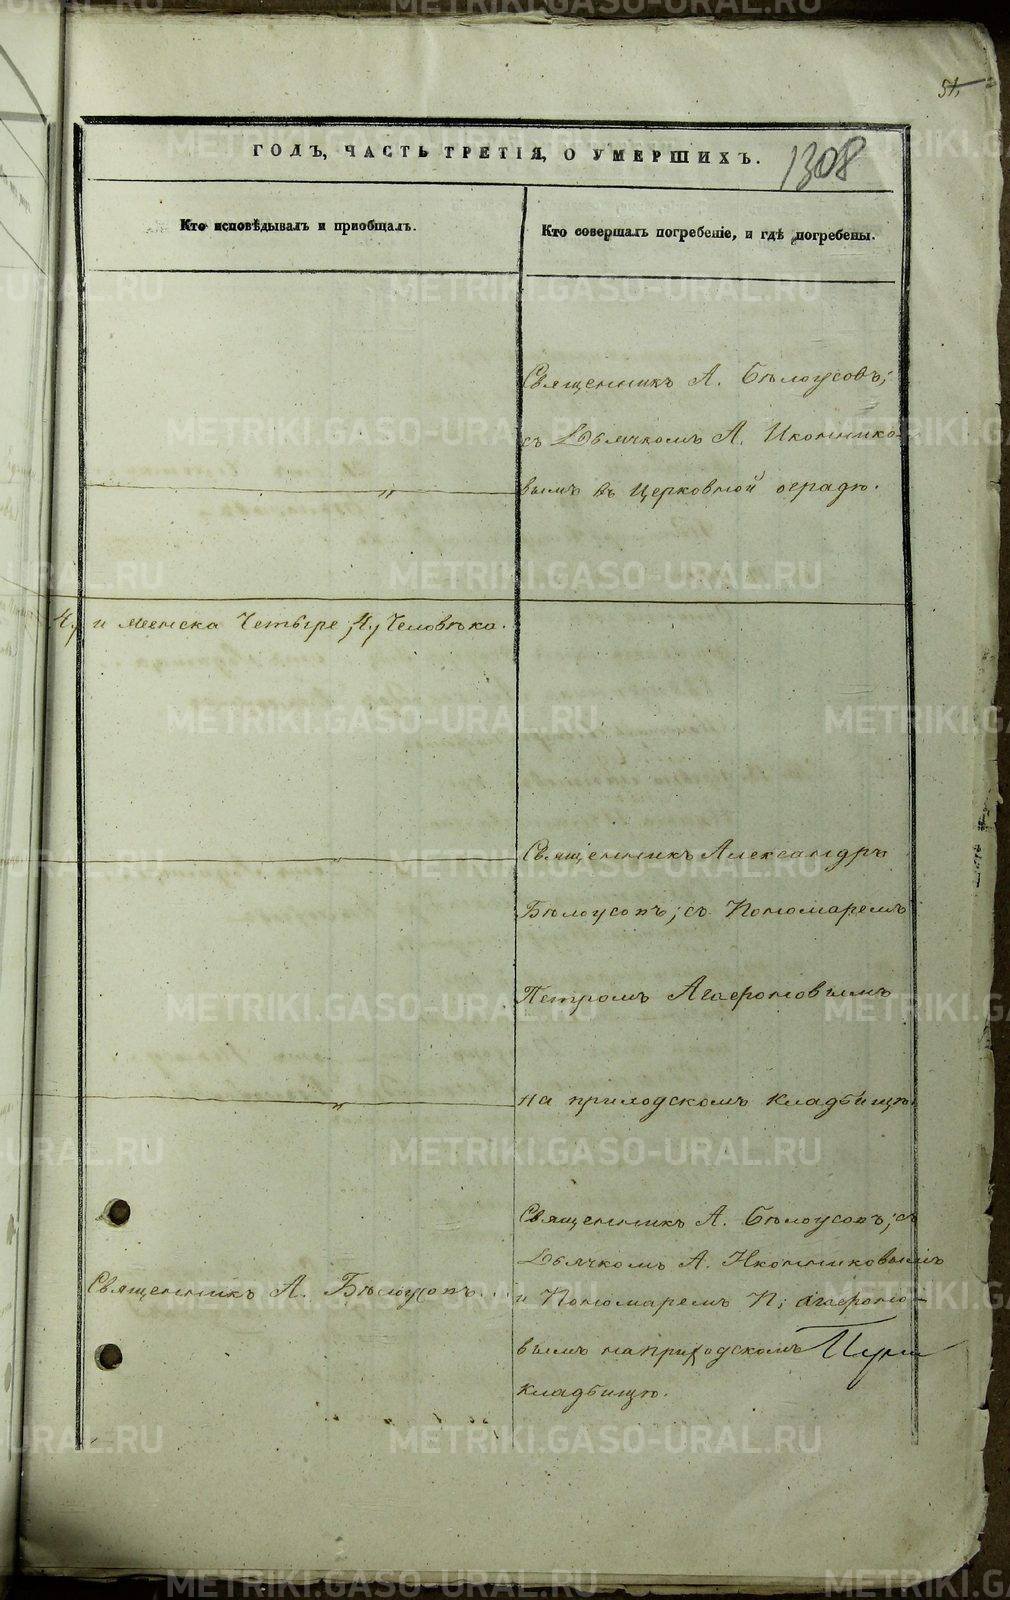 51,
ГОДЪ, ЧАСТЬ ТРЕТІЯ, О УМЕРШИХЪ.
1308
Кто исповѣдывалъ и пріобщалъ.
Кто совершалъ погребеніе, и гдѣ погребены.
Священникъ А. Бѣлоусовъ;
съ Дьячкомъ А. Иконнико-
вымъ въ Церковной оградѣ.
"
4, и женска Четыре, 4, Человѣка.
Священникъ Александръ
"
Бѣлоусовъ; съ Пономаремъ
Петромъ Агафоновымъ
на приходскомъ кладбищѣ.
"
Священникъ А. Бѣлоусовъ; съ
Дьячкомъ А. Иконниковымъ
Священникъ А. Бѣлоусовъ.
и Пономаремъ П; Агафоно-
вымъ на приходскомъ
кладбищѣ.
METRIKI.GASO-URAL.RU